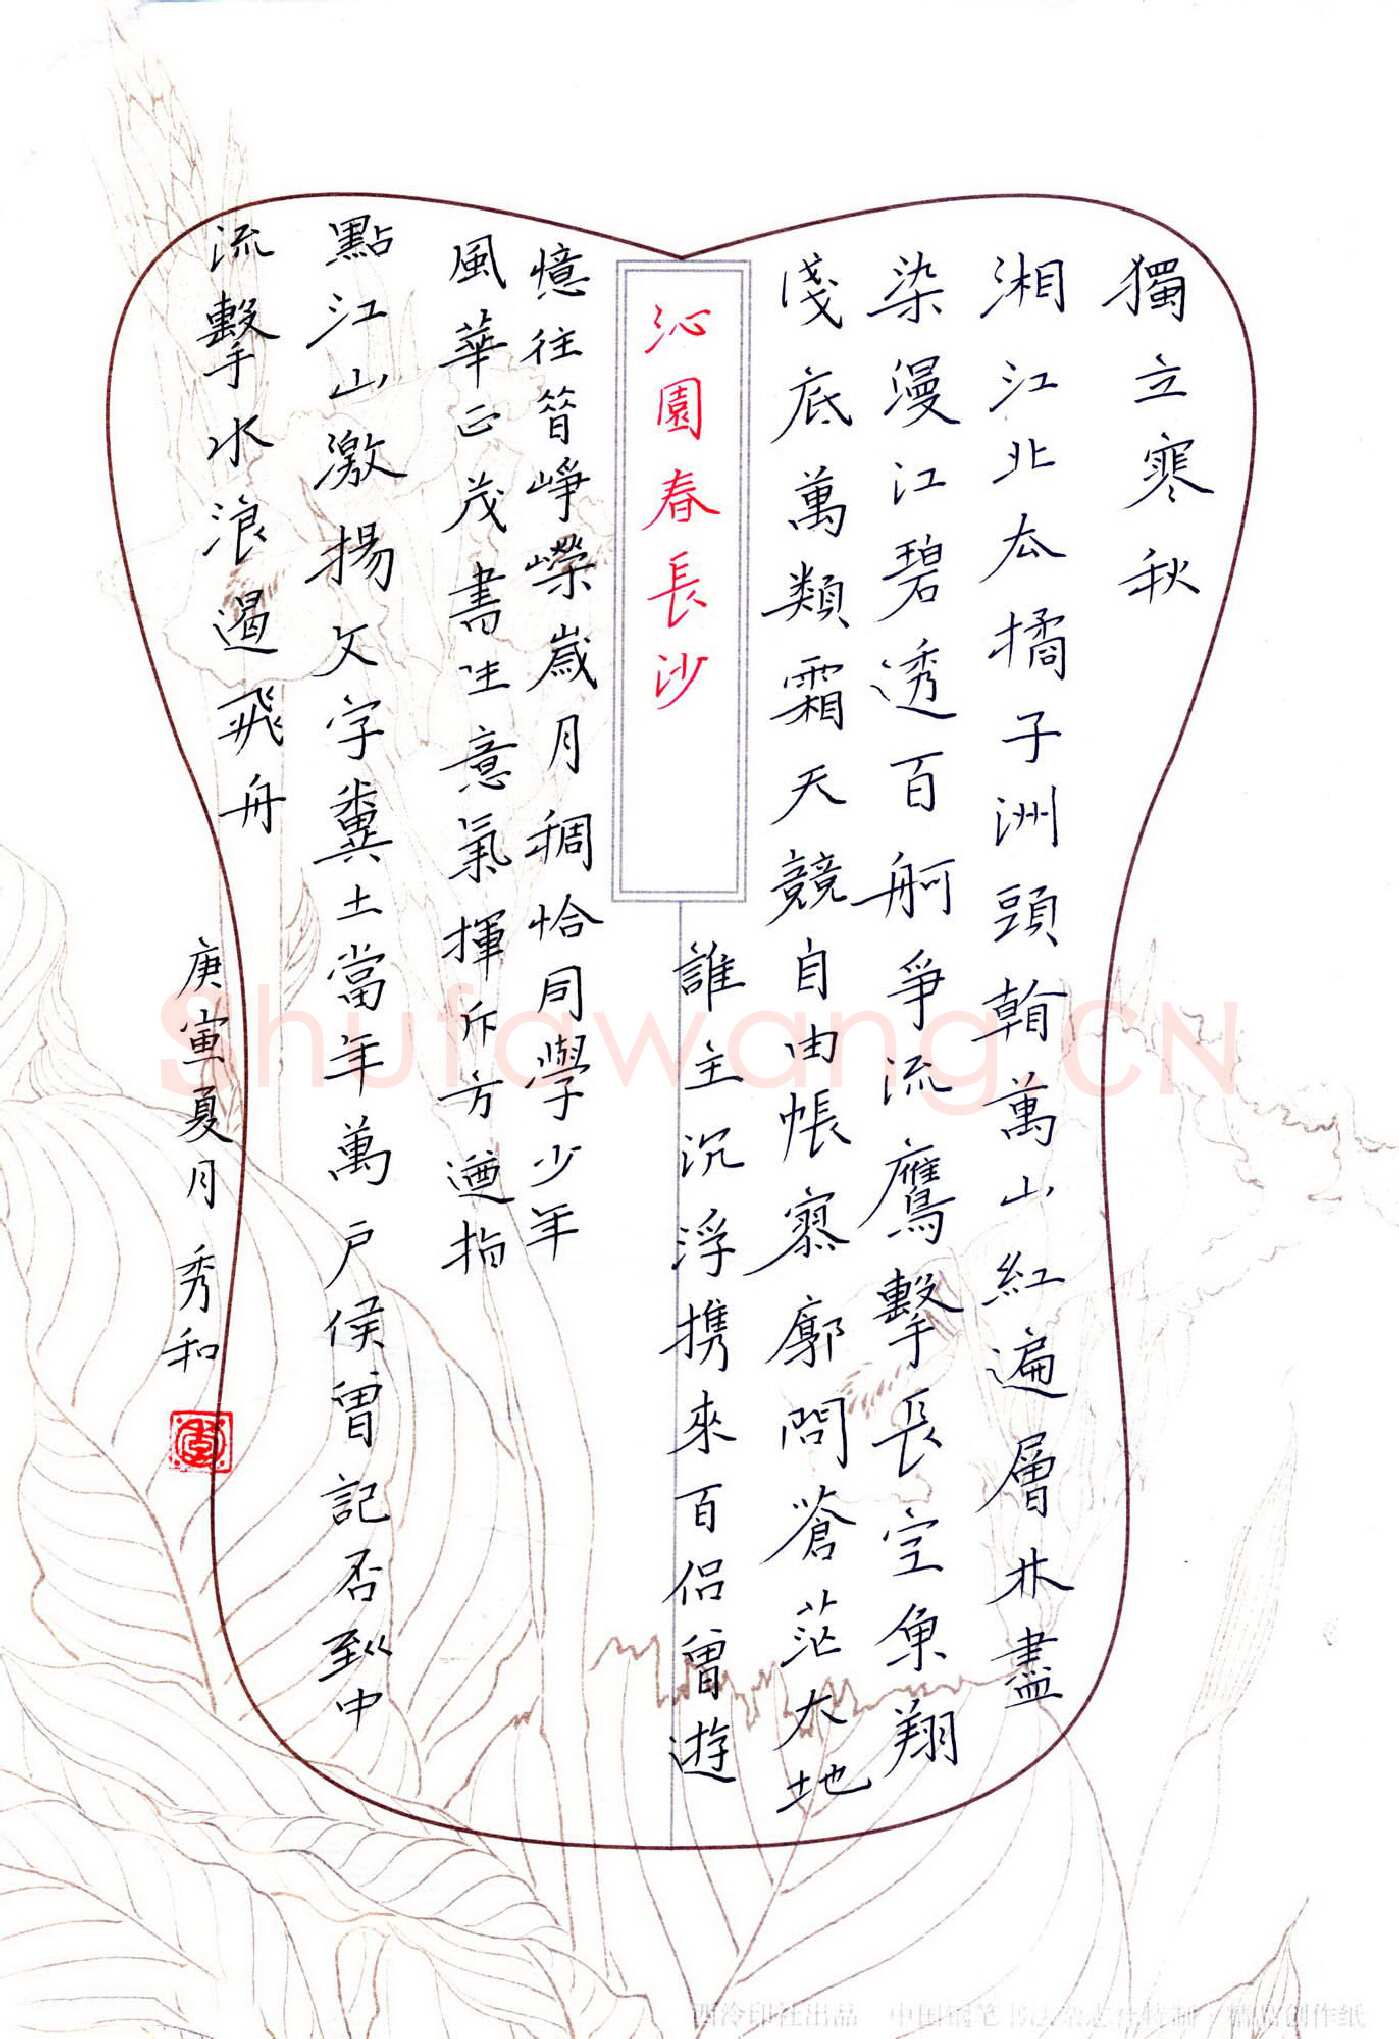 獨立寒秋
湘江北去橘子洲頭翰萬山紅遍層林盡
染漫江碧透百舸爭流鷹擊長空魚翔
淺底萬類霜天競自由悵寥廓問蒼茫大地
沁園春長沙
誰主沉浮携來百侶曾遊
憶往昔崢嶸歲月稠恰同學少年
風華正茂書生意氣揮斥方遒指
點江山激揚文字糞土當年萬戶侯曾記否到中
流擊水浪遏飛舟
庚寅夏月秀和
Shufawang.CN
西泠印社出品 中国钢笔书法杂志社特制 创作纸